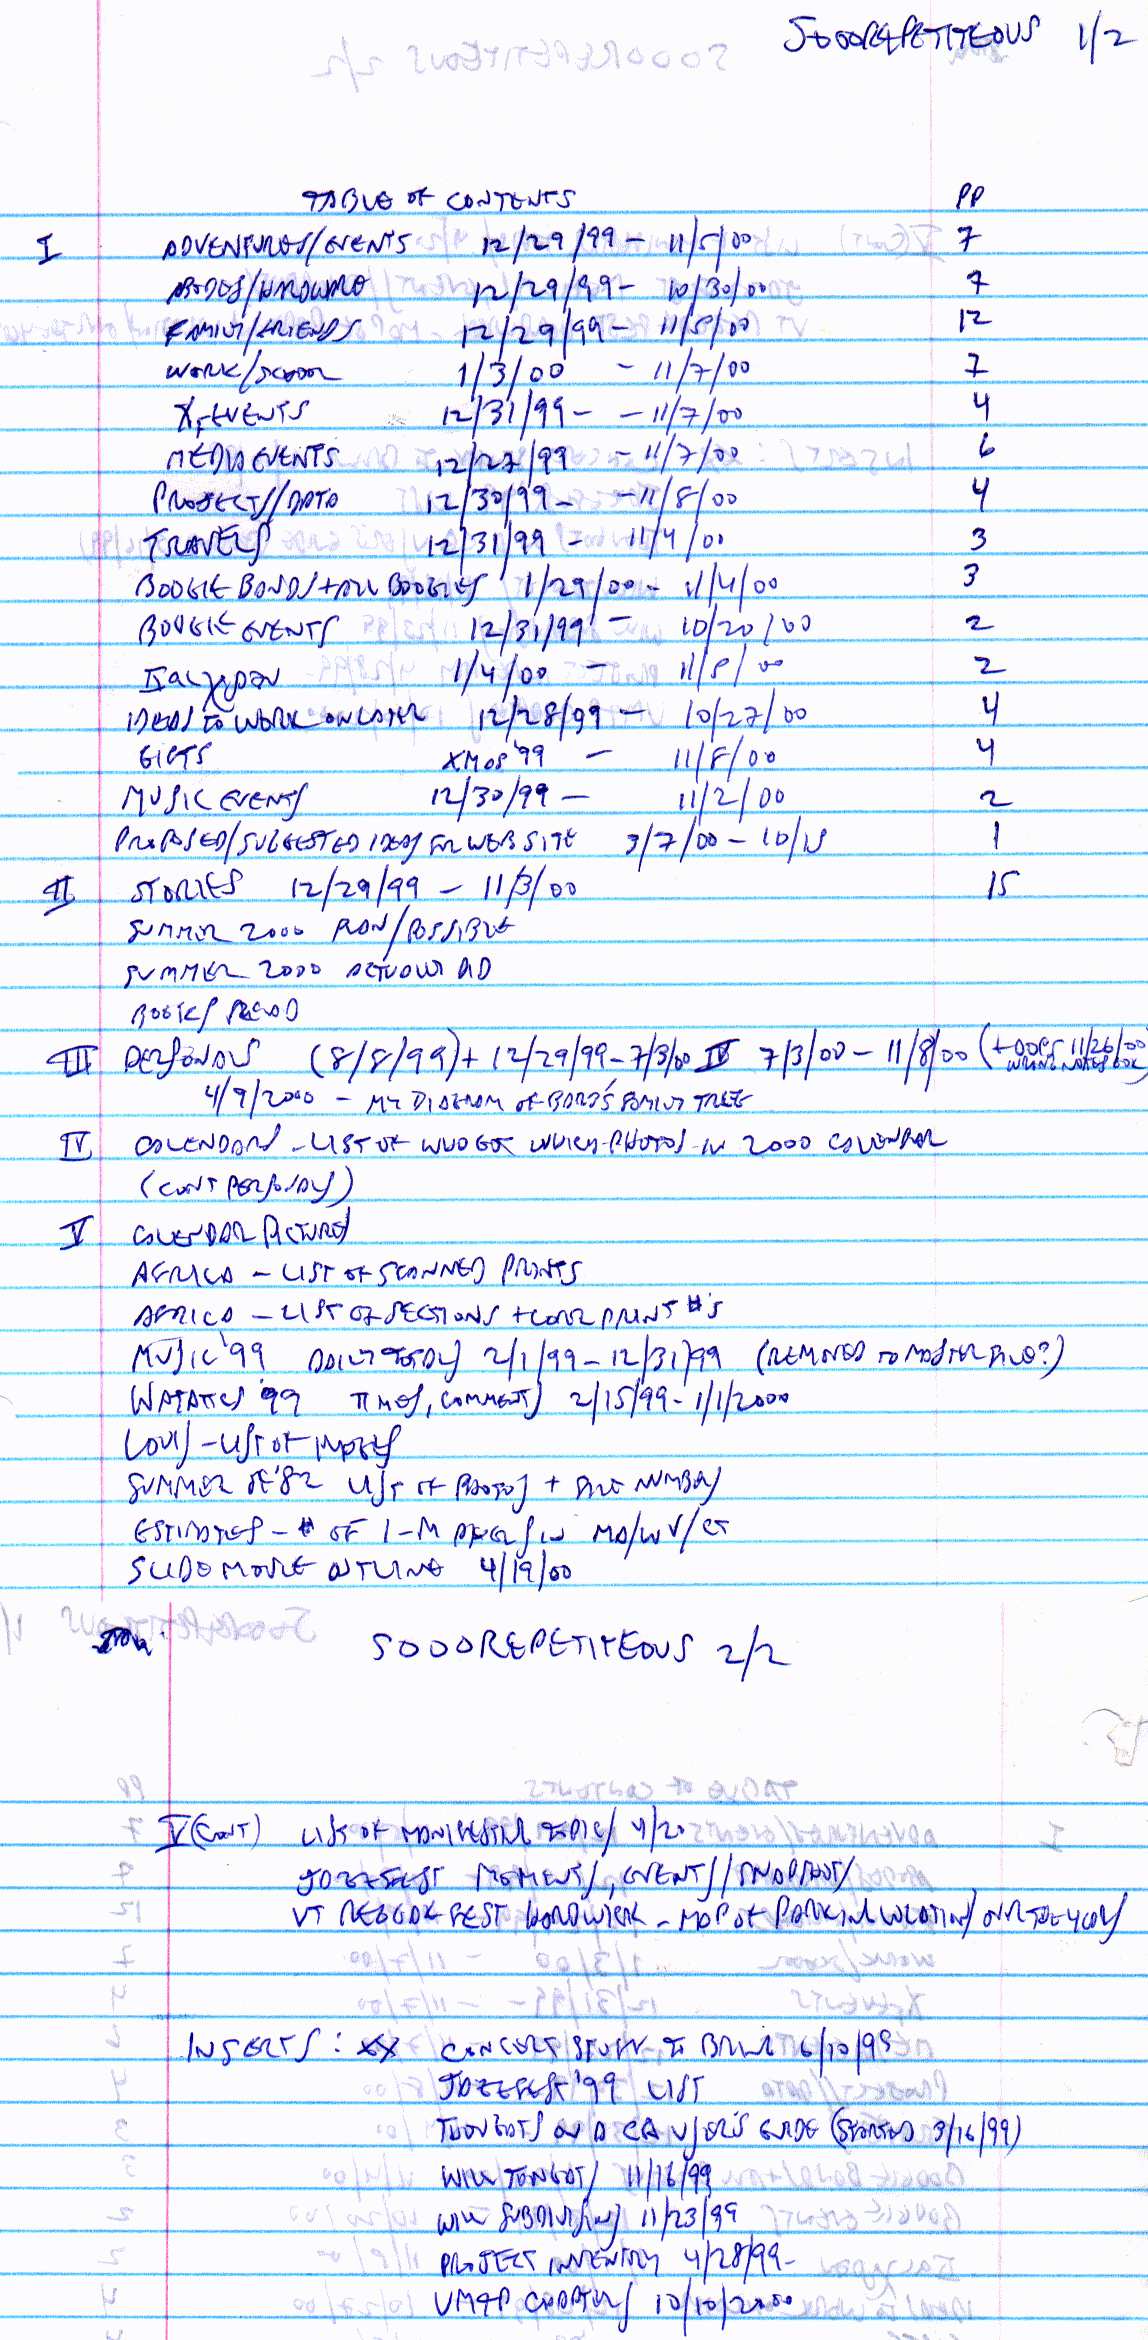 SOOOREPETITEOUS 1/2
TABLE OF CONTENTS PP
I ADVENTURES/EVENTS 12/29/99 - 11/5/00 7
ABODES/HARDWARE 12/29/99 - 10/30/00 7
FAMILY/FRIENDS 12/29/99 - 11/5/00 12
WORK/SCHOOL 1/3/00 - 11/7/00 7
EVENTS 12/31/99 - - 11/7/00 4
MEDIA EVENTS 12/27/99 - 11/7/00 6
PROJECTS/DATA 12/30/99 - - 11/8/00 4
TRAVELS 12/31/99 - 11/4/00 3
BOOGIE BANDS + ALL BOOGIES 1/29/00 - 11/4/00 3
BOOGIE EVENTS 12/31/99 - 10/20/00 2
1/4/00 - 11/8/00 2
IDEAS TO WORK ON LATER 12/28/99 - 10/27/00 4
GIFTS XMAS '99 - 11/8/00 4
MUSIC EVENTS 12/30/99 - 11/2/00 2
PROPOSED/SUGGESTED IDEAS FOR WEB SITE 3/7/00 - 10/15 1
II STORIES 12/29/99 - 11/3/00 15
SUMMER 2000 PLAN/POSSIBLE
SUMMER 2000 ACTUALLY DID
BOOKS READ
III PERSONALS (8/8/99) + 12/29/99 - 7/3/00 IV 7/3/00 - 11/8/00 (+ OOPS 11/26/00 WRONG NOTEBOOK)
4/9/2000 - MY DIAGRAM OF BARB'S FAMILY TREE
IV CALENDARS - LIST OF WHO GOT WHICH PHOTOS IN 2000 CALENDAR
(CONT PERSONALS)
V CALENDAR PICTURES
AFRICA - LIST OF SCANNED PRINTS
AFRICA - LIST OF SECTIONS + CORR PRINT #'S
MUSIC '99 DAILY TOTALS 2/1/99 - 12/31/99 (REMOVED TO MASTER FILE?)
WATATICS '99 TIMES, COMMENTS 2/15/99 - 1/1/2000
LOUIS - LIST OF IMAGES
SUMMER OF '82 LIST OF PHOTOS + FILE NUMBERS
ESTIMATES - # OF 1-M PAPERS IN MA/WV/CT
SLIDE MOVIE OUTLINE 4/19/00
SOOOREPETITEOUS 2/2
V (CONT) LIST OF MANIFESTING TOPICS 4/20
JAZZFEST MOMENTS, EVENTS/SNAPSHOTS
VT REGGAE FEST HARDWICK - MAP OF PARKING LOCATIONS OVER THE YEARS
INSERTS: CONCERT STUFF TO BRING 6/10/95
JAZZFEST '99 LIST
THOUGHTS ON A CA USER'S GUIDE (STARTED 3/16/99)
11/16/99
SUBDIVISIONS 11/23/99
PROJECT INVENTORY 4/28/99 -
CHAPTERS 10/10/2000